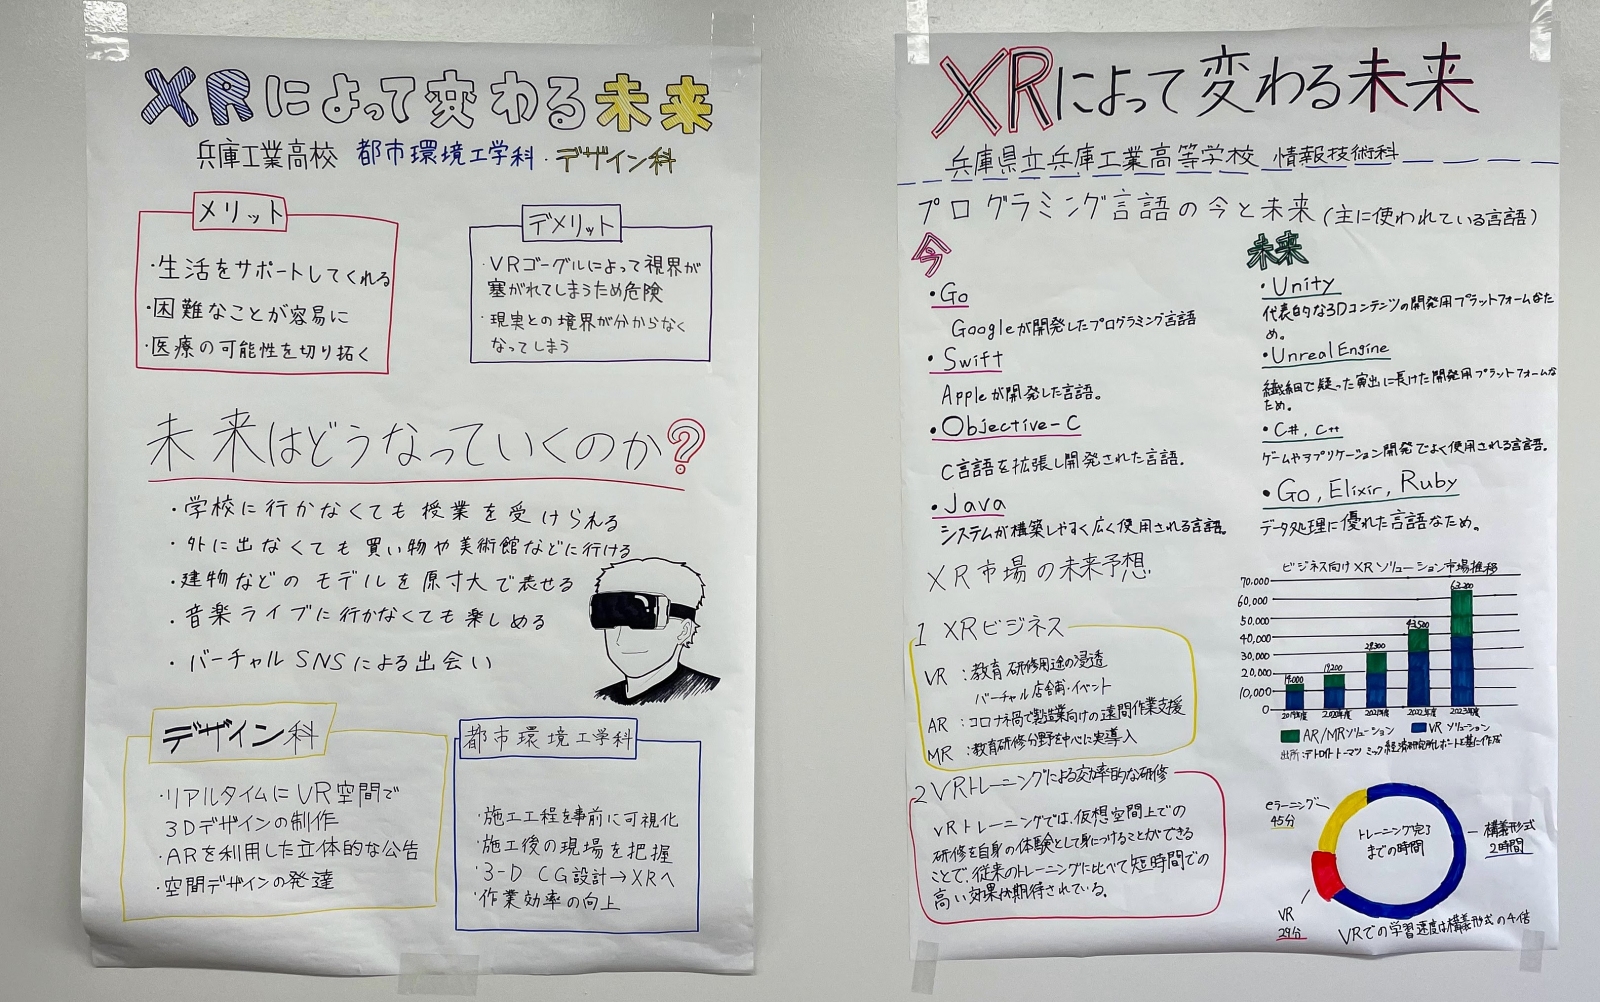 XRによって変わる未来
兵庫工業高校 都市環境工学科・デザイン科
メリット
・生活をサポートしてくれる
・困難なことが容易に
・医療の可能性を切り拓く
デメリット
・VRゴーグルによって視界が
塞がれてしまうため危険
・現実との境界が分からなく
なってしまう
未来はどうなっていくのか?
・学校に行かなくても授業を受けられる
・外に出なくても買い物や美術館などに行ける
・建物などのモデルを原寸大で表せる
・音楽ライブに行かなくても楽しめる
・バーチャルSNSによる出会い
デザイン科
・リアルタイムにVR空間で
3Dデザインの制作
・ARを利用した立体的な公告
・空間デザインの発達
都市環境工学科
・施工工程を事前に可視化
・施工後の現場を把握
・3-D CG設計→XRへ
・作業効率の向上
XRによって変わる未来
兵庫県立兵庫工業高等学校 情報技術科
プログラミング言語の今と未来(主に使われている言語)
今
・Go
Googleが開発したプログラミング言語
・Swift
Appleが開発した言語。
・Objective-C
C言語を拡張し開発された言語。
・Java
システムが構築しやすく広く使用される言語。
未来
・Unity
代表的な3Dコンテンツの開発用プラットフォームなた
め。
・Unreal Engine
繊細で凝った演出に長けた開発用プラットフォームな
ため。
・C#, C++
ゲームやアプリケーション開発でよく使用される言語。
・Go, Elixir, Ruby
データ処理に優れた言語なため。
XR市場の未来予想
1 XRビジネス
VR:教育研修用途の浸透
バーチャル店舗・イベント
AR:コロナ禍で製造業向けの遠隔作業支援
MR:教育研修分野を中心に実導入
2 VRトレーニングによる効率的な研修
VRトレーニングでは、仮想空間上での
研修を自身の体験として身につけることができる
ことで、従来のトレーニングに比べて短時間での
高い効果が期待されている。
ビジネス向けXRソリューション市場推移
70,000
60,000
50,000
40,000
30,000
20,000
10,000
0
14,000
19,200
29,300
43,500
63,200
2019年度 2020年度 2021年度 2022年度 2023年度
AR/MRソリューション VRソリューション
出所:デトロイトトーマツ ミック経済研究所レポートを基に作成
eラーニング
45分
トレーニング完了
までの時間
構義形式
2時間
VR
29分
VRでの学習速度は構義形式の4倍